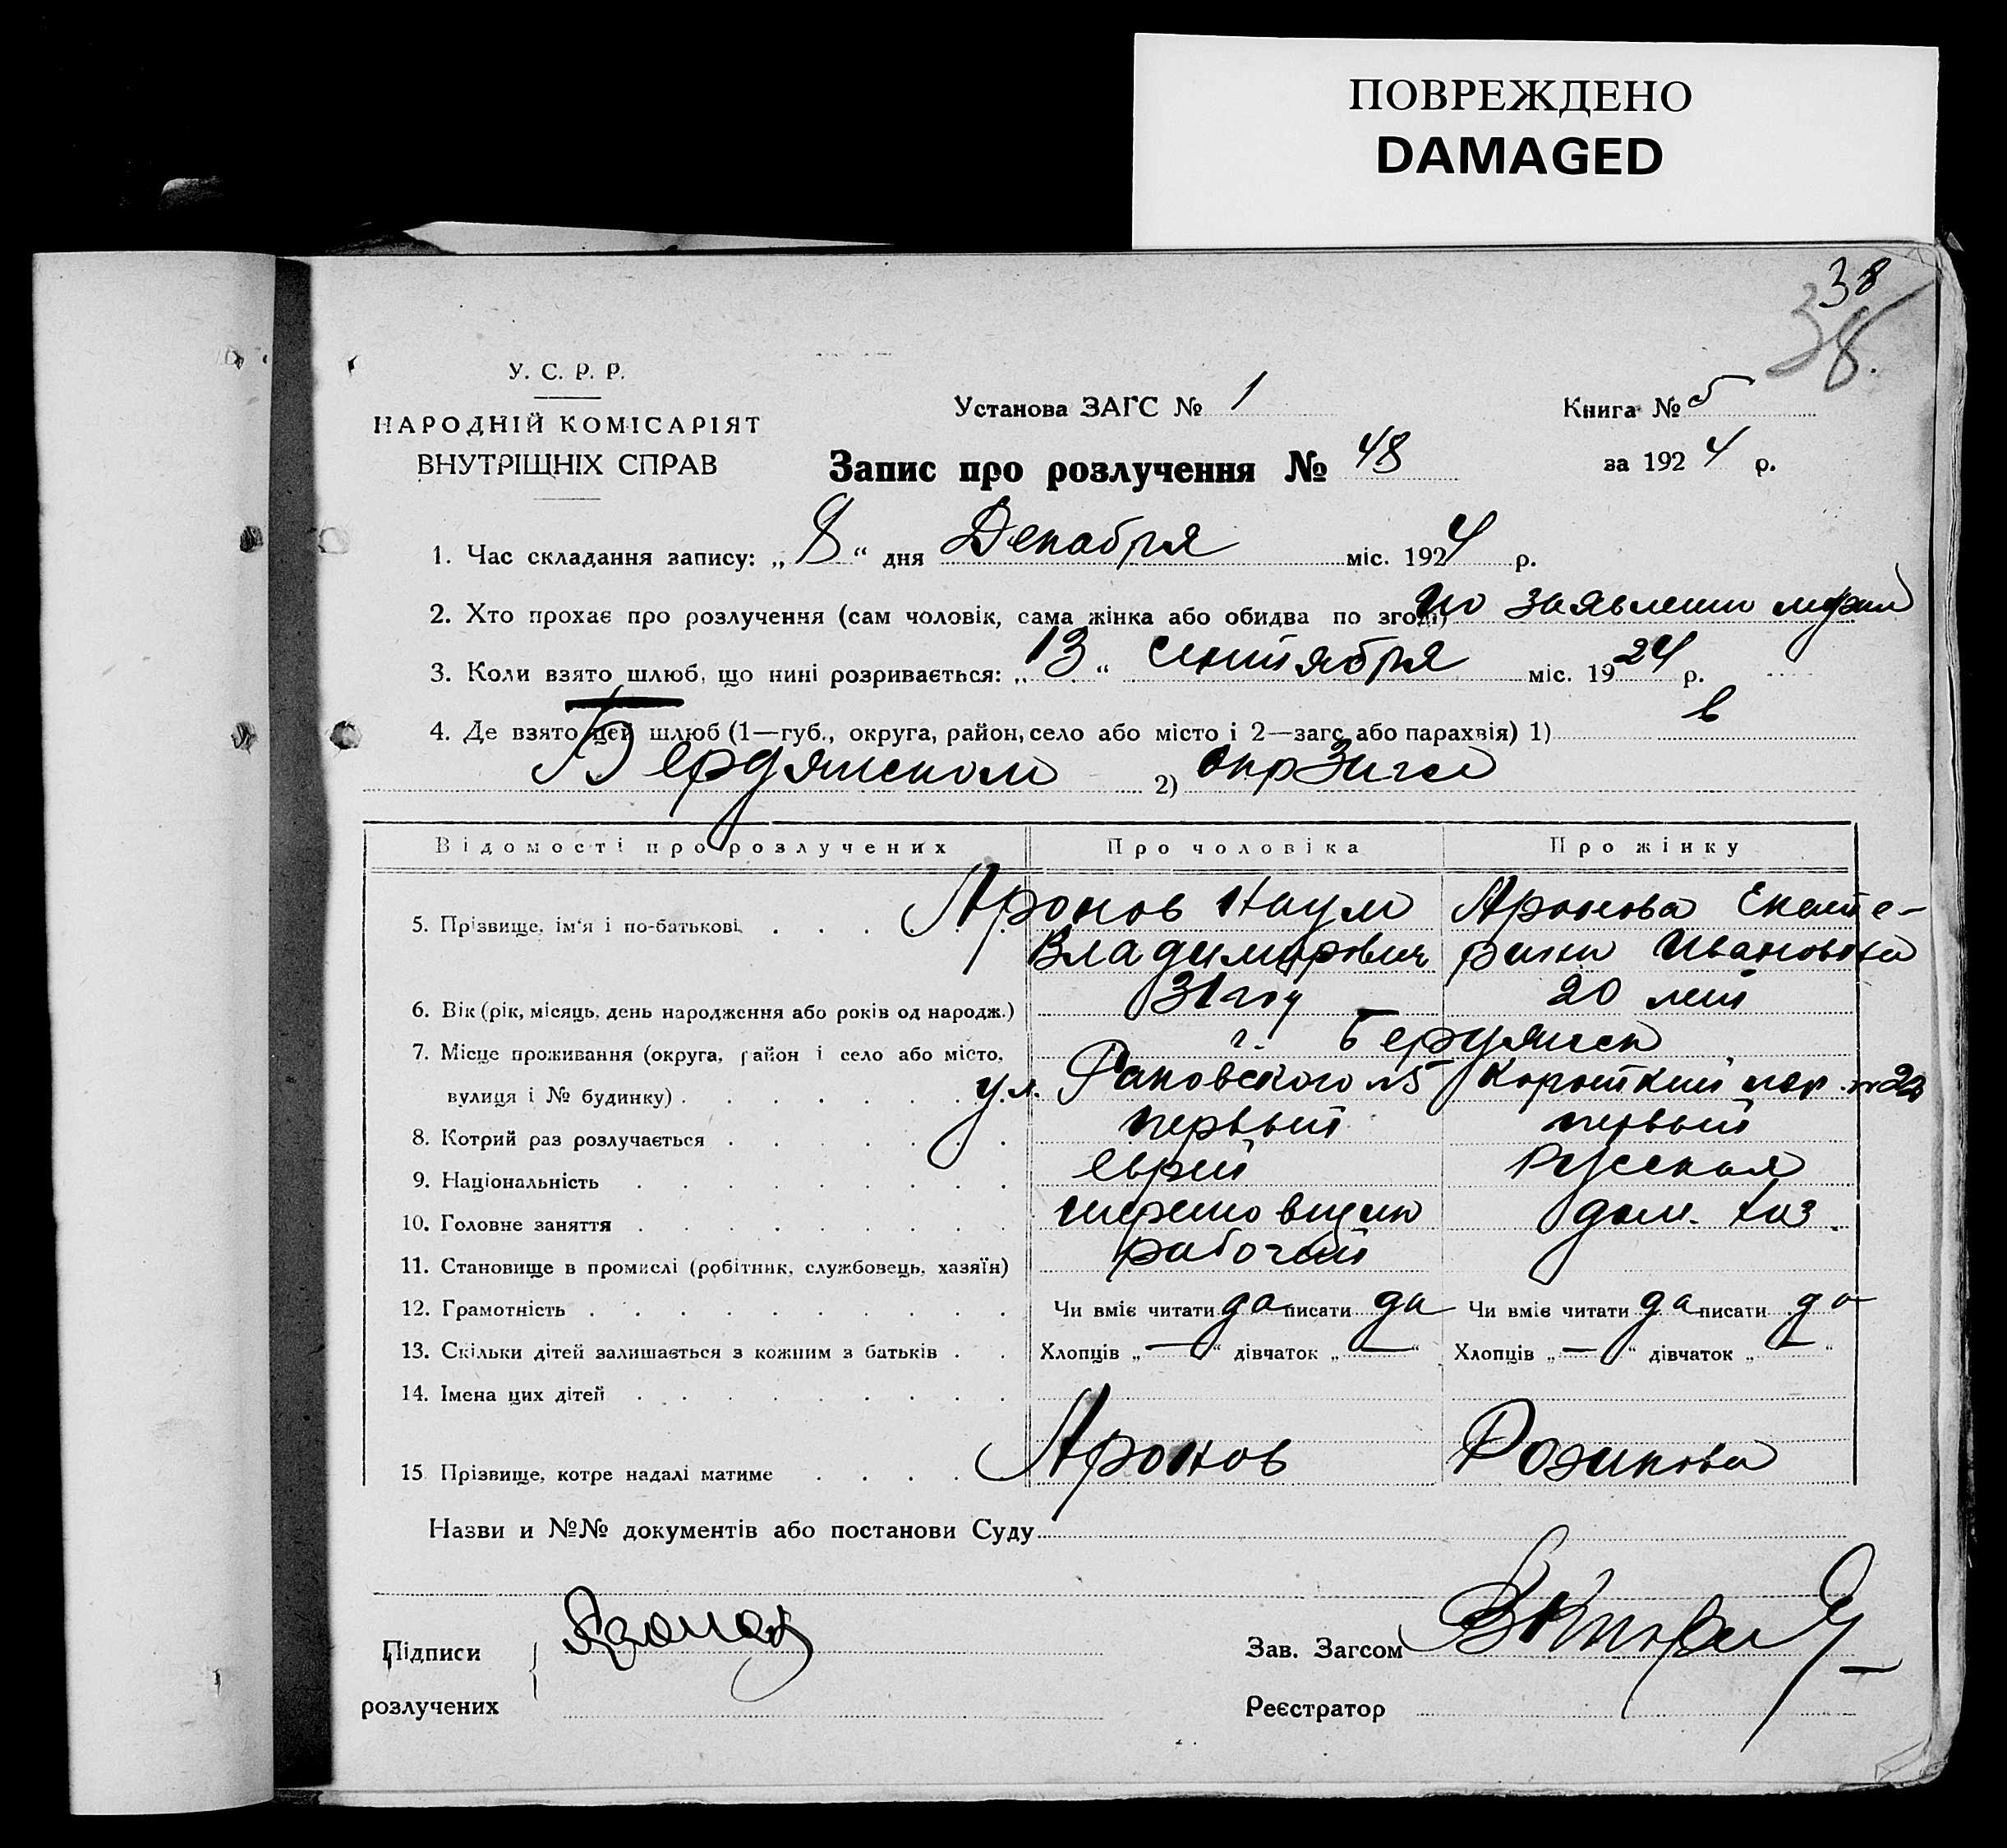 ПОВРЕЖДЕНО
DAMAGED
38
38.
У. С. Р. Р.
НАРОДНІЙ КОМІСАРІЯТ
ВНУТРІШНІХ СПРАВ
Установа ЗАГС № 1
Книга № 5
Запис про розлучення № 48
за 1924 р.
1. Час складання запису: „8“ дня Декабря міс. 1924 р.
2. Хто прохає про розлучення (сам чоловік, сама жінка або обидва по згоді) по заявлению мужа
3. Коли взято шлюб, що нині розривається: „13“ сентября міс. 1924 р.
4. Де взято цей шлюб (1—губ., округа, район, село або місто і 2—загс або парахвія) 1) в
Бердянском 2) окрЗагсе
Відомості про розлучених Про чоловіка Про жінку
5. Прізвище, ім'я і по-батькові Аронов Наум Аронова Екате-
Владимирович рина Ивановна
6. Вік (рік, місяць, день народження або років од народж.) 31 год 20 лет
7. Місце проживання (округа, район і село або місто, г. Бердянск
вулиця і № будинку) ул. Раковского №5 Короткий пер. №22
8. Котрий раз розлучається первый первый
9. Національність еврей Русская
10. Головне заняття дом. хоз.
11. Становище в промислі (робітник, службовець, хазяїн) рабочий
12. Грамотність Чи вміє читати да писати да Чи вміє читати да писати да
13. Скільки дітей залишається з кожним з батьків Хлопців „—“ дівчаток „—“ Хлопців „—“ дівчаток „—“
14. Імена цих дітей
15 Прізвище, котре надалі матиме Аронов Розинова
Назви и №№ документів або постанови Суду
Підписи
розлучених
Зав. Загсом
Реєстратор